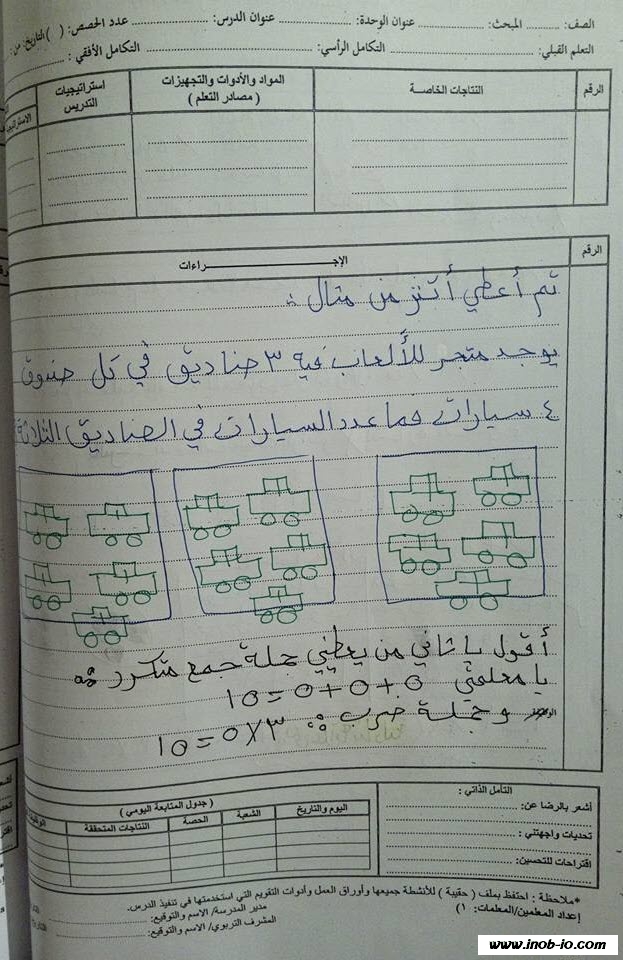 الصف: ............ المبحث: ............ عنوان الوحدة: ............ عنوان الدرس: ............ عدد الحصص: ( ) التاريخ: من:
التعلم القبلي: ............ التكامل الرأسي: ............ التكامل الأفقي: ............
الرقم
النتاجات الخاصــة
المواد والأدوات والتجهيزات
( مصادر التعلم )
استراتيجيات
التدريس
الرقم
الإجـــــراءات
ثم أعطي أكثر من مثال :
يوجد متجر للألعاب فيه ٣ صناديق في كل صندوق
٤ سيارات فما عدد السيارات في الصناديق الثلاثة
أقول يا ثاني من يعطيني جملة جمع متكرر
يا معلمتي ٥ + ٥ + ٥ = ١٥
وجملة ضرب :: ٣ × ٥ = ١٥
التأمل الذاتي :
أشعر بالرضا عن: ............
تحديات واجهتني : ............
اقتراحات للتحسين: ............
( جدول المتابعة اليومي )
اليوم والتاريخ
الشعبة
الحصة
النتاجات المتحققة
*ملاحظة : احتفظ بملف ( حقيبة ) للأنشطة جميعها وأوراق العمل وأدوات التقويم التي استخدمتها في تنفيذ الدرس.
إعداد المعلمين/المعلمات: ١)
مدير المدرسة/ الاسم والتوقيع: ............
المشرف التربوي/ الاسم والتوقيع: ............
www.inob-io.com